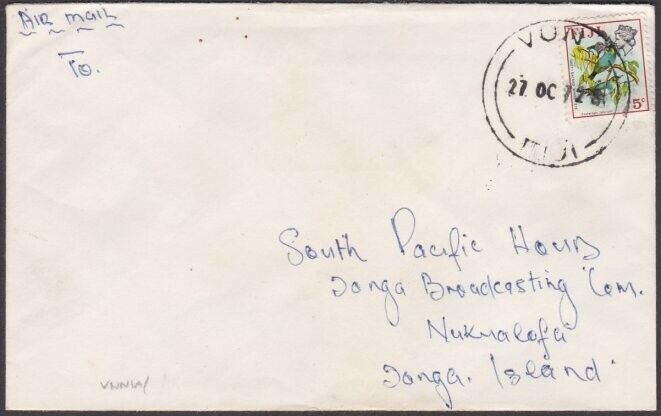 Air Mail
To.
FIJI
5c
27 OC 72
FIJI
South Pacific Hours
Tonga Broadcasting Com.
Nukualofa
Tonga. Island.